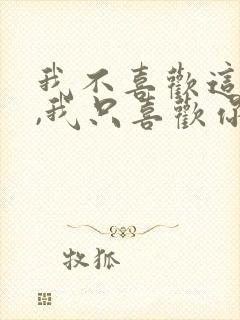 我不喜歡這
,我只喜歡你
牧狐